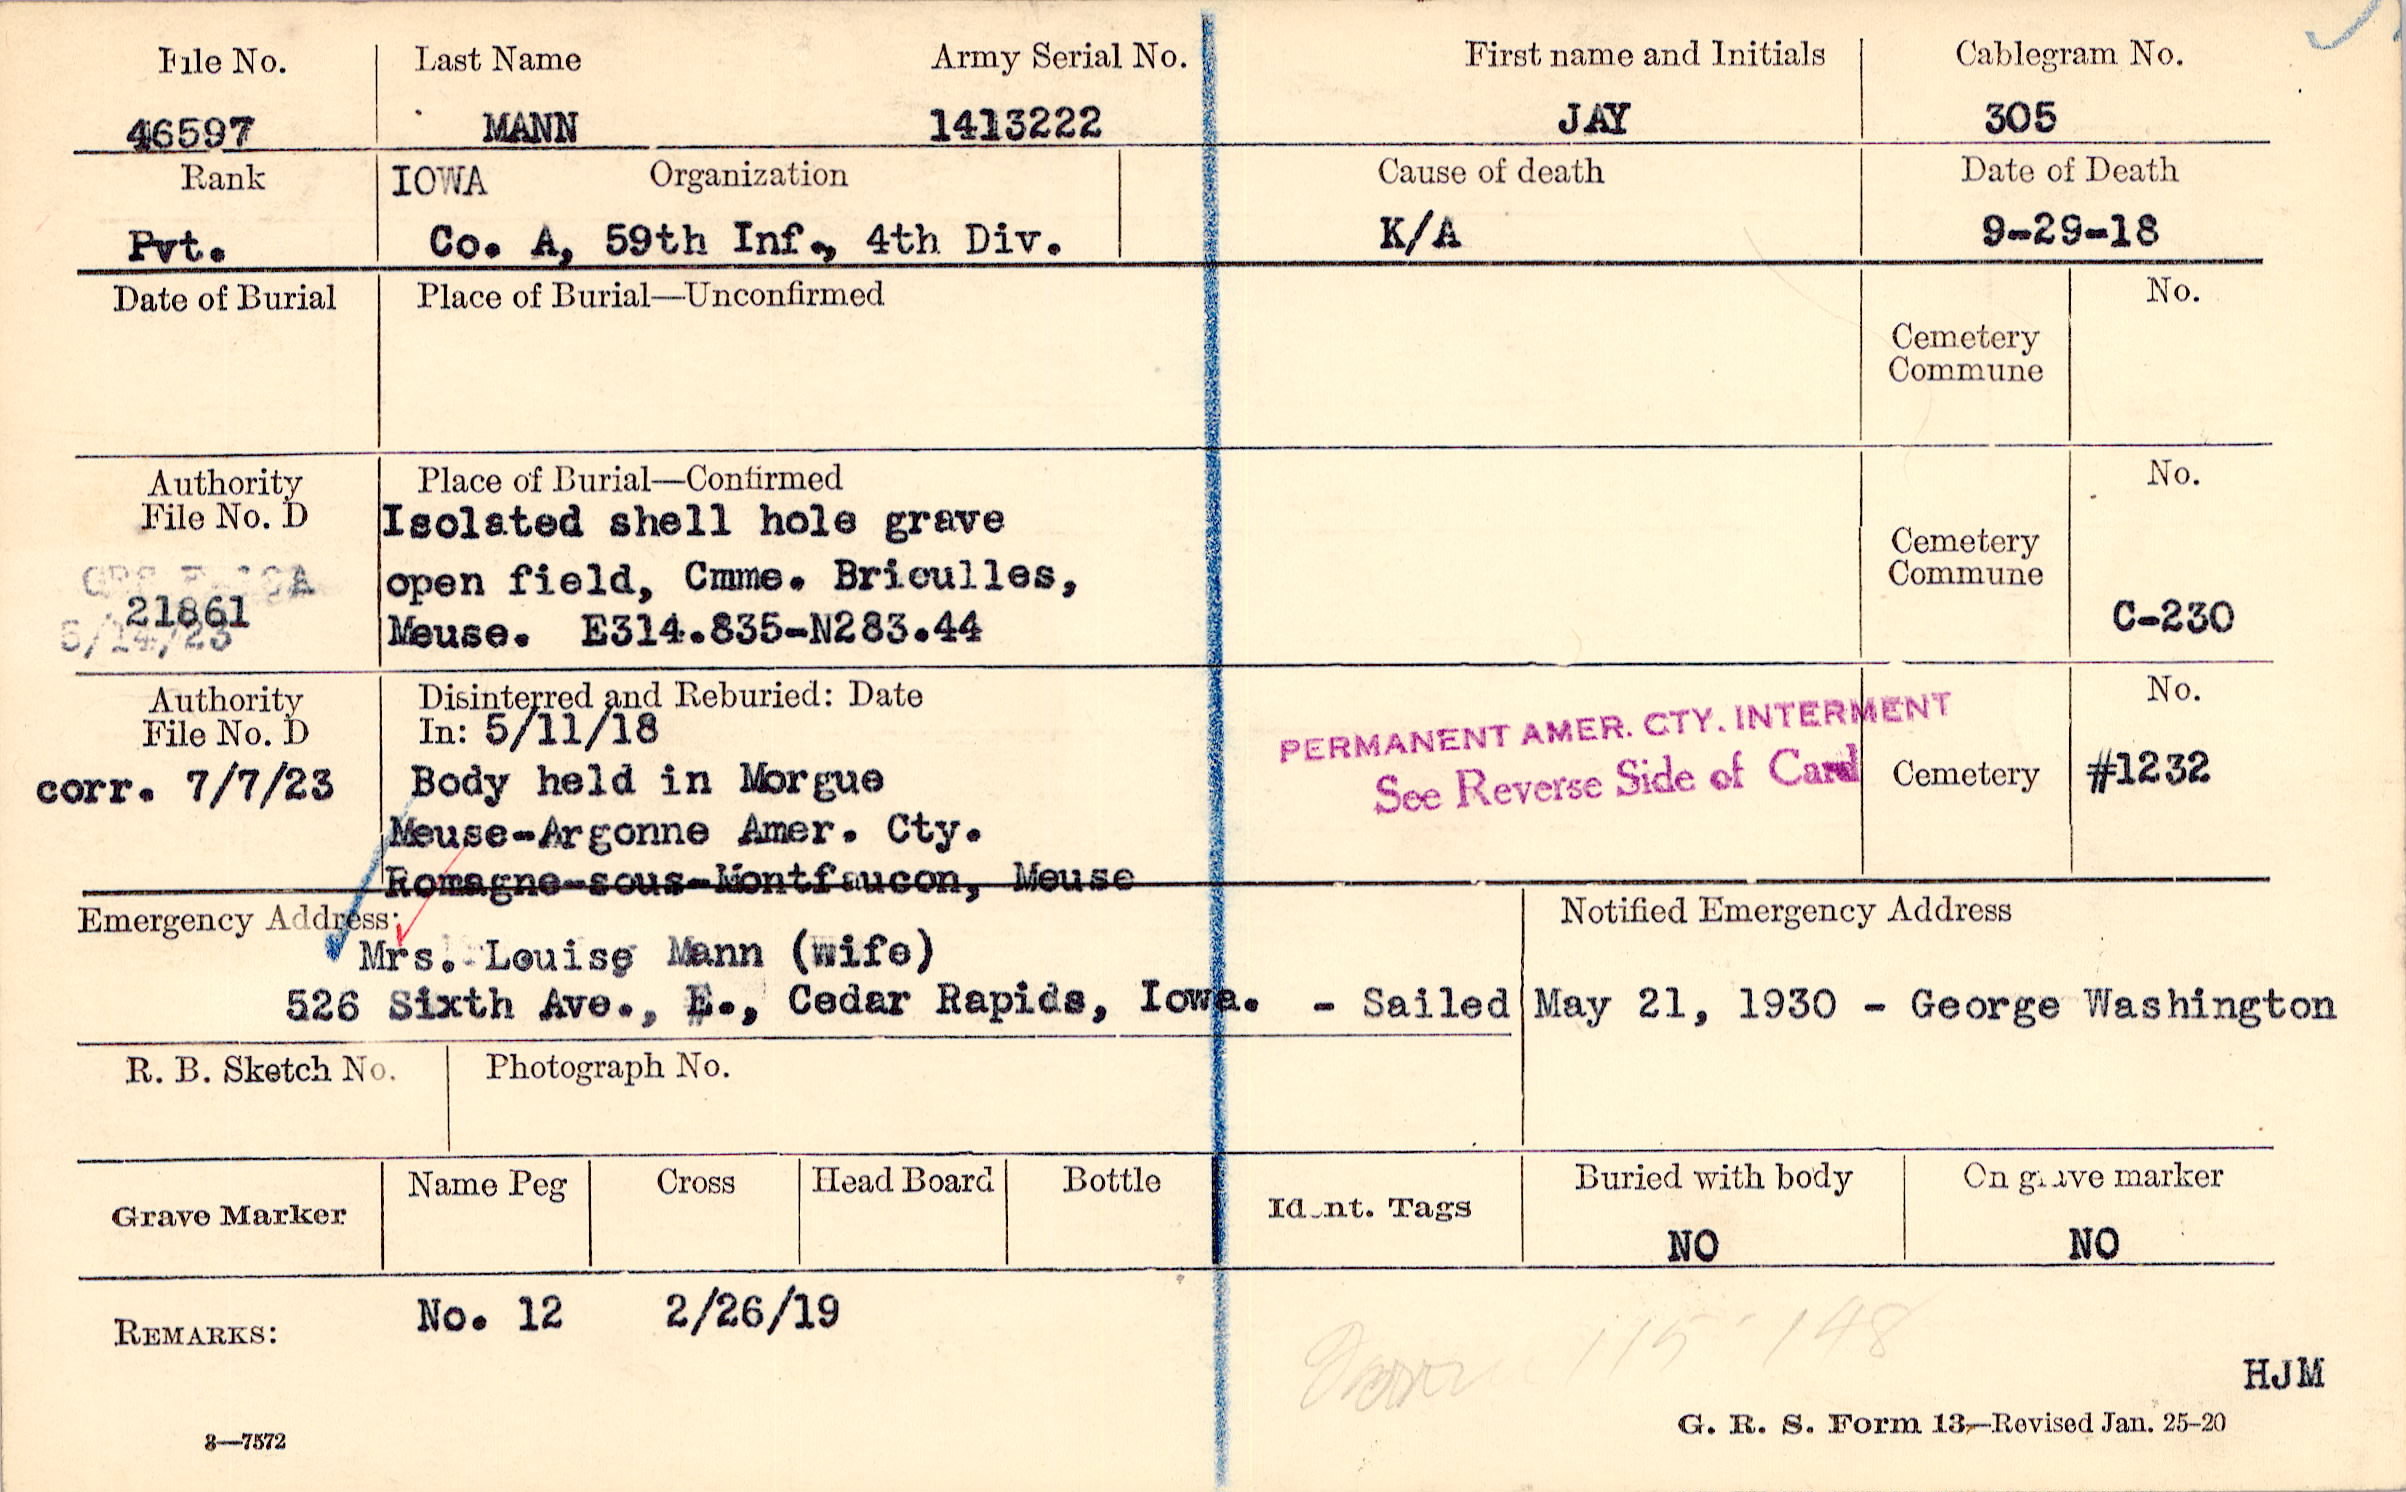 File No. Last Name Army Serial No. First name and Initials Cablegram No.
46597 MANN 1413222 JAY 305
Rank IOWA Organization Cause of death Date of Death
Pvt. Co. A, 59th Inf., 4th Div. K/A 9-29-18
Date of Burial Place of Burial—Unconfirmed No.
Cemetery
Commune
Authority Place of Burial—Confirmed No.
File No. D Isolated shell hole grave
Cemetery
open field, Cmme. Brieulles, Commune
21861
5/14/23 Meuse. E314.835-N283.44 C-230
Authority Disinterred and Reburied: Date No.
File No. D In: 5/11/18 PERMANENT AMER. CTY. INTERMENT
corr. 7/7/23 Body held in Morgue See Reverse Side of Card Cemetery #1232
Meuse-Argonne Amer. Cty.
Romagne-sous-Montfaucon, Meuse
Emergency Address: Notified Emergency Address
Mrs. Louise Mann (wife)
526 Sixth Ave., E., Cedar Rapids, Iowa. - Sailed May 21, 1930 - George Washington
R. B. Sketch No. Photograph No.
Name Peg Cross Head Board Bottle Buried with body On grave marker
Grave Marker Ident. Tags
NO NO
REMARKS: No. 12 2/26/19
115-148
HJM
8—7572 G. R. S. Form 13—Revised Jan. 25-20